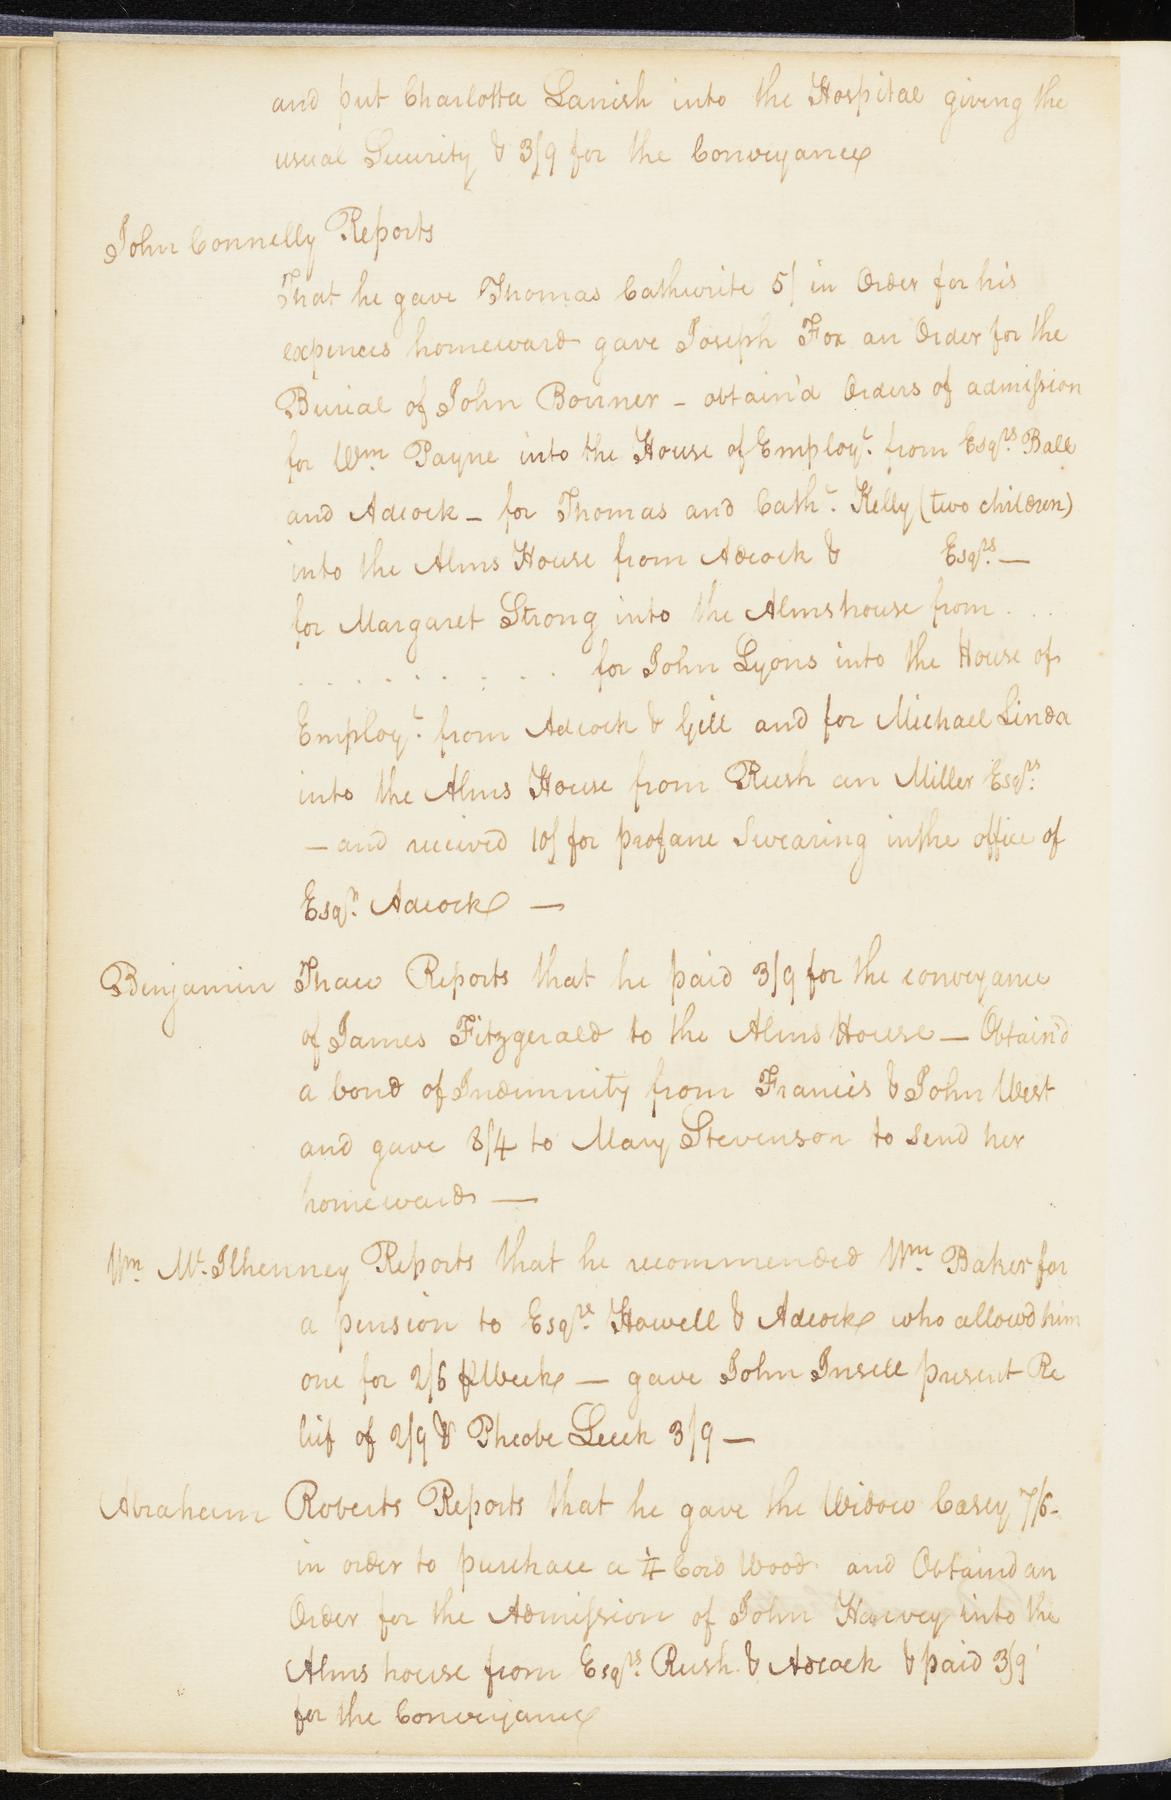 and put Charlotta Lanish into the Hospital giving the
usual Security & 3/9 for the Conveyance
John Connelly Reports
That he gave Thomas Cathwrite 5/ in Order for his
expences homeward gave Joseph Fox an Order for the
Burial of John Bonner - obtain'd Orders of admission
for Wm Payne into the House of Employt. from Esqrs. Ball
and Adcock - for Thomas and Cathe. Kelly (two children)
into the Alms House from Adcock & Esqrs. —
for Margaret Strong into the Almshouse from . . .
. . . . . . . . . for John Lyons into the House of
Employt. from Adcock & Gill and for Michael Linda
into the Alms House from Rush an Miller Esqrs.
— and received 10/ for profane Swearing in the office of
Esqr. Adcock —
Benjamin Thaw Reports that he paid 3/9 for the conveyance
of James Fitzgerald to the Alms House — Obtain'd
a bond of Indemnity from Francis & John West
and gave 8/4 to Mary Stevenson to send her
homewards —
Wm. Mc.Ilhenney Reports that he recommended Wm. Baker for
a pension to Esqrs. Howell & Adcock who allowd him
one for 2/6 ⅌ Week — gave John Insell present Re
lief of 2/9 & Pheobe Leech 3/9 —
Abraham Roberts Reports that he gave the Widow Casey 7/6-
in order to purchase a ¼ Cord Wood and Obtaind an
Order for the Admission of John Harvey into the
Alms house from Esqrs. Rush & Adcock & paid 3/9
for the Conveyance